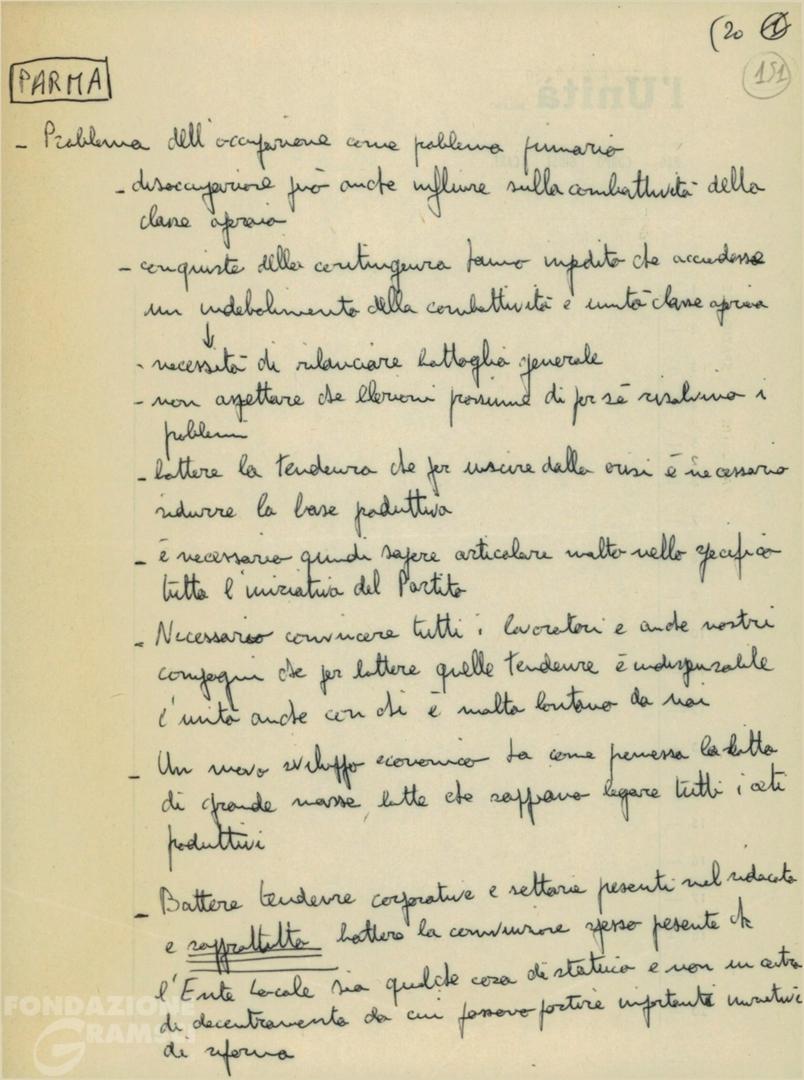 (20 1
151
l'Unità
PARMA
- Problema dell'occupazione come problema primario
- disoccupazione può anche influire sulla combattività della
classe operaia
- conquiste della contingenza hanno impedito che accadesse
un indebolimento della combattività e unità classe operaia
- necessità di rilanciare battaglia generale
- non aspettare che elezioni prossime di per sé risolvino i
problemi
- battere la tendenza che per uscire dalla crisi è necessario
ridurre la base produttiva
- è necessario quindi sapere articolare molto nello specifico
tutta l'iniziativa del Partito
- Necessario convincere tutti i lavoratori e anche nostri
compagni che per battere quelle tendenze è indispensabile
l'unità anche con chi è molto lontano da noi
- Un nuovo sviluppo economico ha come premessa la lotta
di grande masse, lotte che sappano legare tutti i ceti
produttivi
- Battere tendenze corporative e settarie presenti nel sidacato
e soprattutto battere la convinzione spesso presente ch
l'Ente Locale sia qualche cosa di statico e non un centro
di decentramento da cui possono partire importanti iniziative
di riforma
FONDAZIONE
GRAMSCI